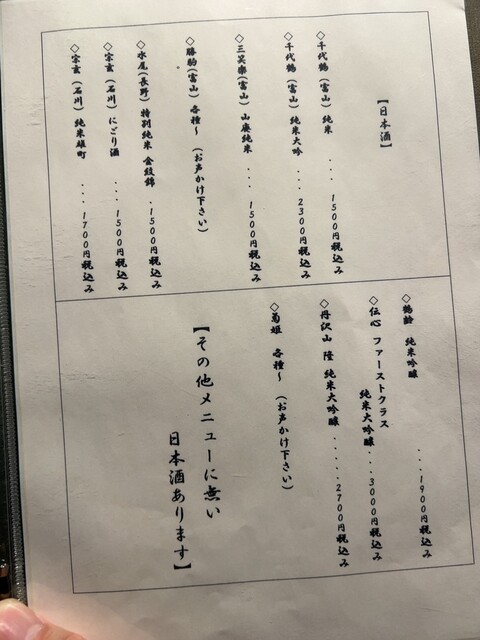 【日本酒】
◇千代鶴（富山）純米 ... 1500円税込み
◇千代鶴（富山）純米大吟 ... 2300円税込み
◇三笑楽（富山）山廃純米 ... 1500円税込み
◇勝駒（富山）各種～（お声かけ下さい）
◇水尾（長野）特別純米 金紋錦 .1500円税込み
◇宗玄（石川）にごり酒 ... 1500円税込み
◇宗玄（石川）純米雄町 ... 1700円税込み
◇鶴齢 純米吟醸 ... 1900円税込み
◇伝心 ファーストクラス
純米大吟醸...3000円税込み
◇丹沢山 隆 純米大吟醸.....2700円税込み
◇菊姫 各種～（お声かけ下さい）
【その他メニューに無い
日本酒あります】